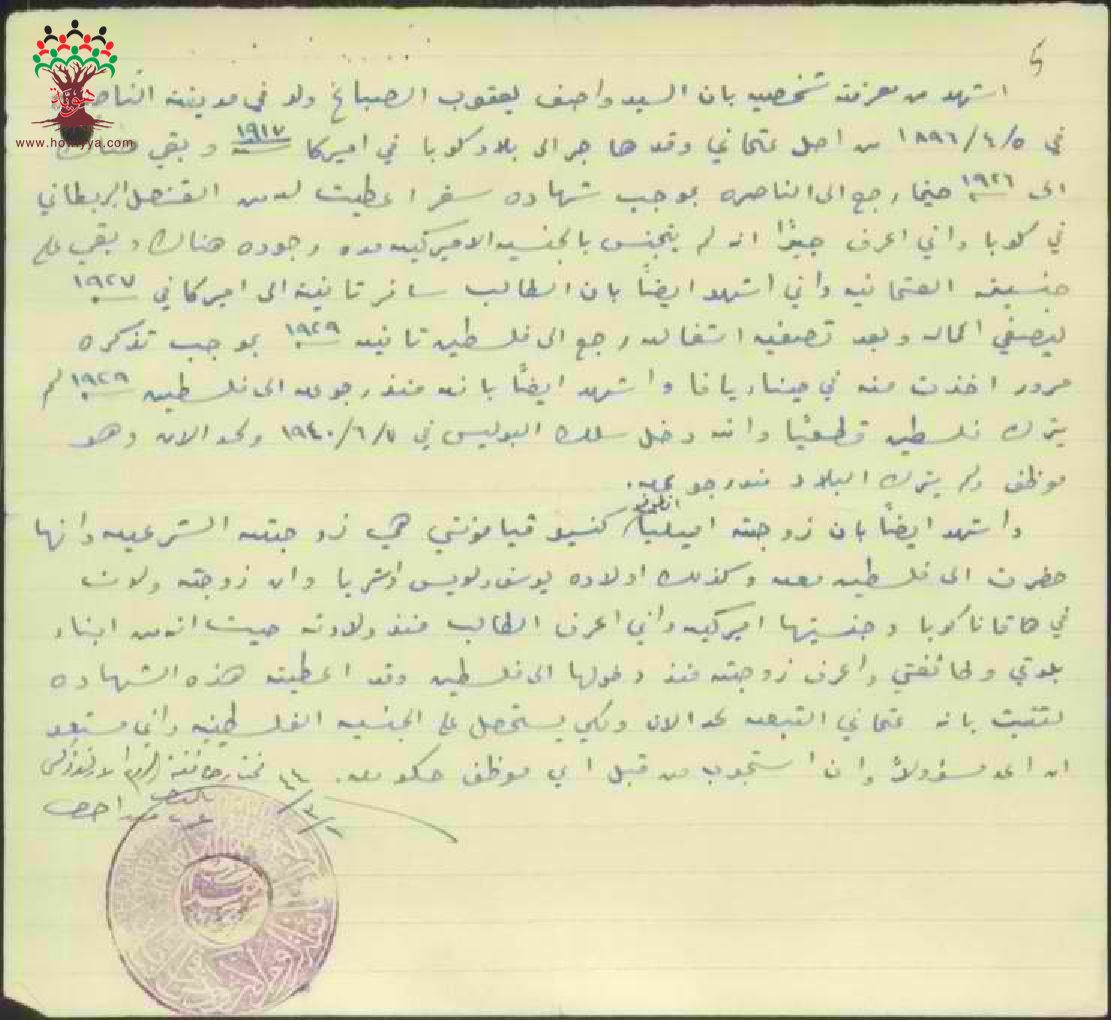 5
اشهد من معرفة شخصيه بان السيد واصف يعقوب الصباغ ولد في مدينة الناصره
في ١٨٩٦/٤/٥ من اصل عثماني وقد هاجر الى بلاد كوبا في اميركا سنة ١٩١٧ و بقي هناك
الى سنة ١٩٢٦ حينما رجع الى الناصره بموجب شهاده سفر اعطيت له من القنصل البريطاني
في كوبا واني اعرف جيدًا انه لم يتجنس بالجنسيه الاميركيه مدة وجوده هناك و بقي على
جنسيته العثمانيه واني اشهد ايضاً بان الطالب سافر ثانية الى اميركا في سنة ١٩٢٧
ليصفي اعماله و بعد تصفية اشغاله رجع الى فلسطين ثانيه سنة ١٩٢٩ بموجب تذكره
مرور اخذت منه في ميناء يافا واشهد ايضاً بانه منذ رجوعه الى فلسطين سنة ١٩٢٩ لم
يترك فلسطين قطعيًا وانه دخل سلك البوليس في ١٩٤٠/٦/٧ ولحد الان وهو
موظف ولم يترك البلاد منذ رجوعه.
واشهد ايضاً بان زوجته اميليا كنسيو هي زوجته الشرعيه وانها
حضرت الى فلسطين معه وكذلك اولاده يوسف ولويس وان زوجته ولدت
في كوبا وجنسيتها اميركيه واني اعرف الطالب منذ ولادته حيث انه من ابناء
بلدتي وطائفتي واعرف زوجته منذ دخولها الى فلسطين وقد اعطيته هذه الشهاده
لتثبت بانه عثماني التبعه لحد الان ولكي يستحصل على الجنسيه الفلسطينيه واني مستعد
ان اعد مسؤولاً وان استجوب من قبل اي موظف حكومه. مختار طائفة الروم الارثوذكس
بالناصره
www.howiyya.com
هوية